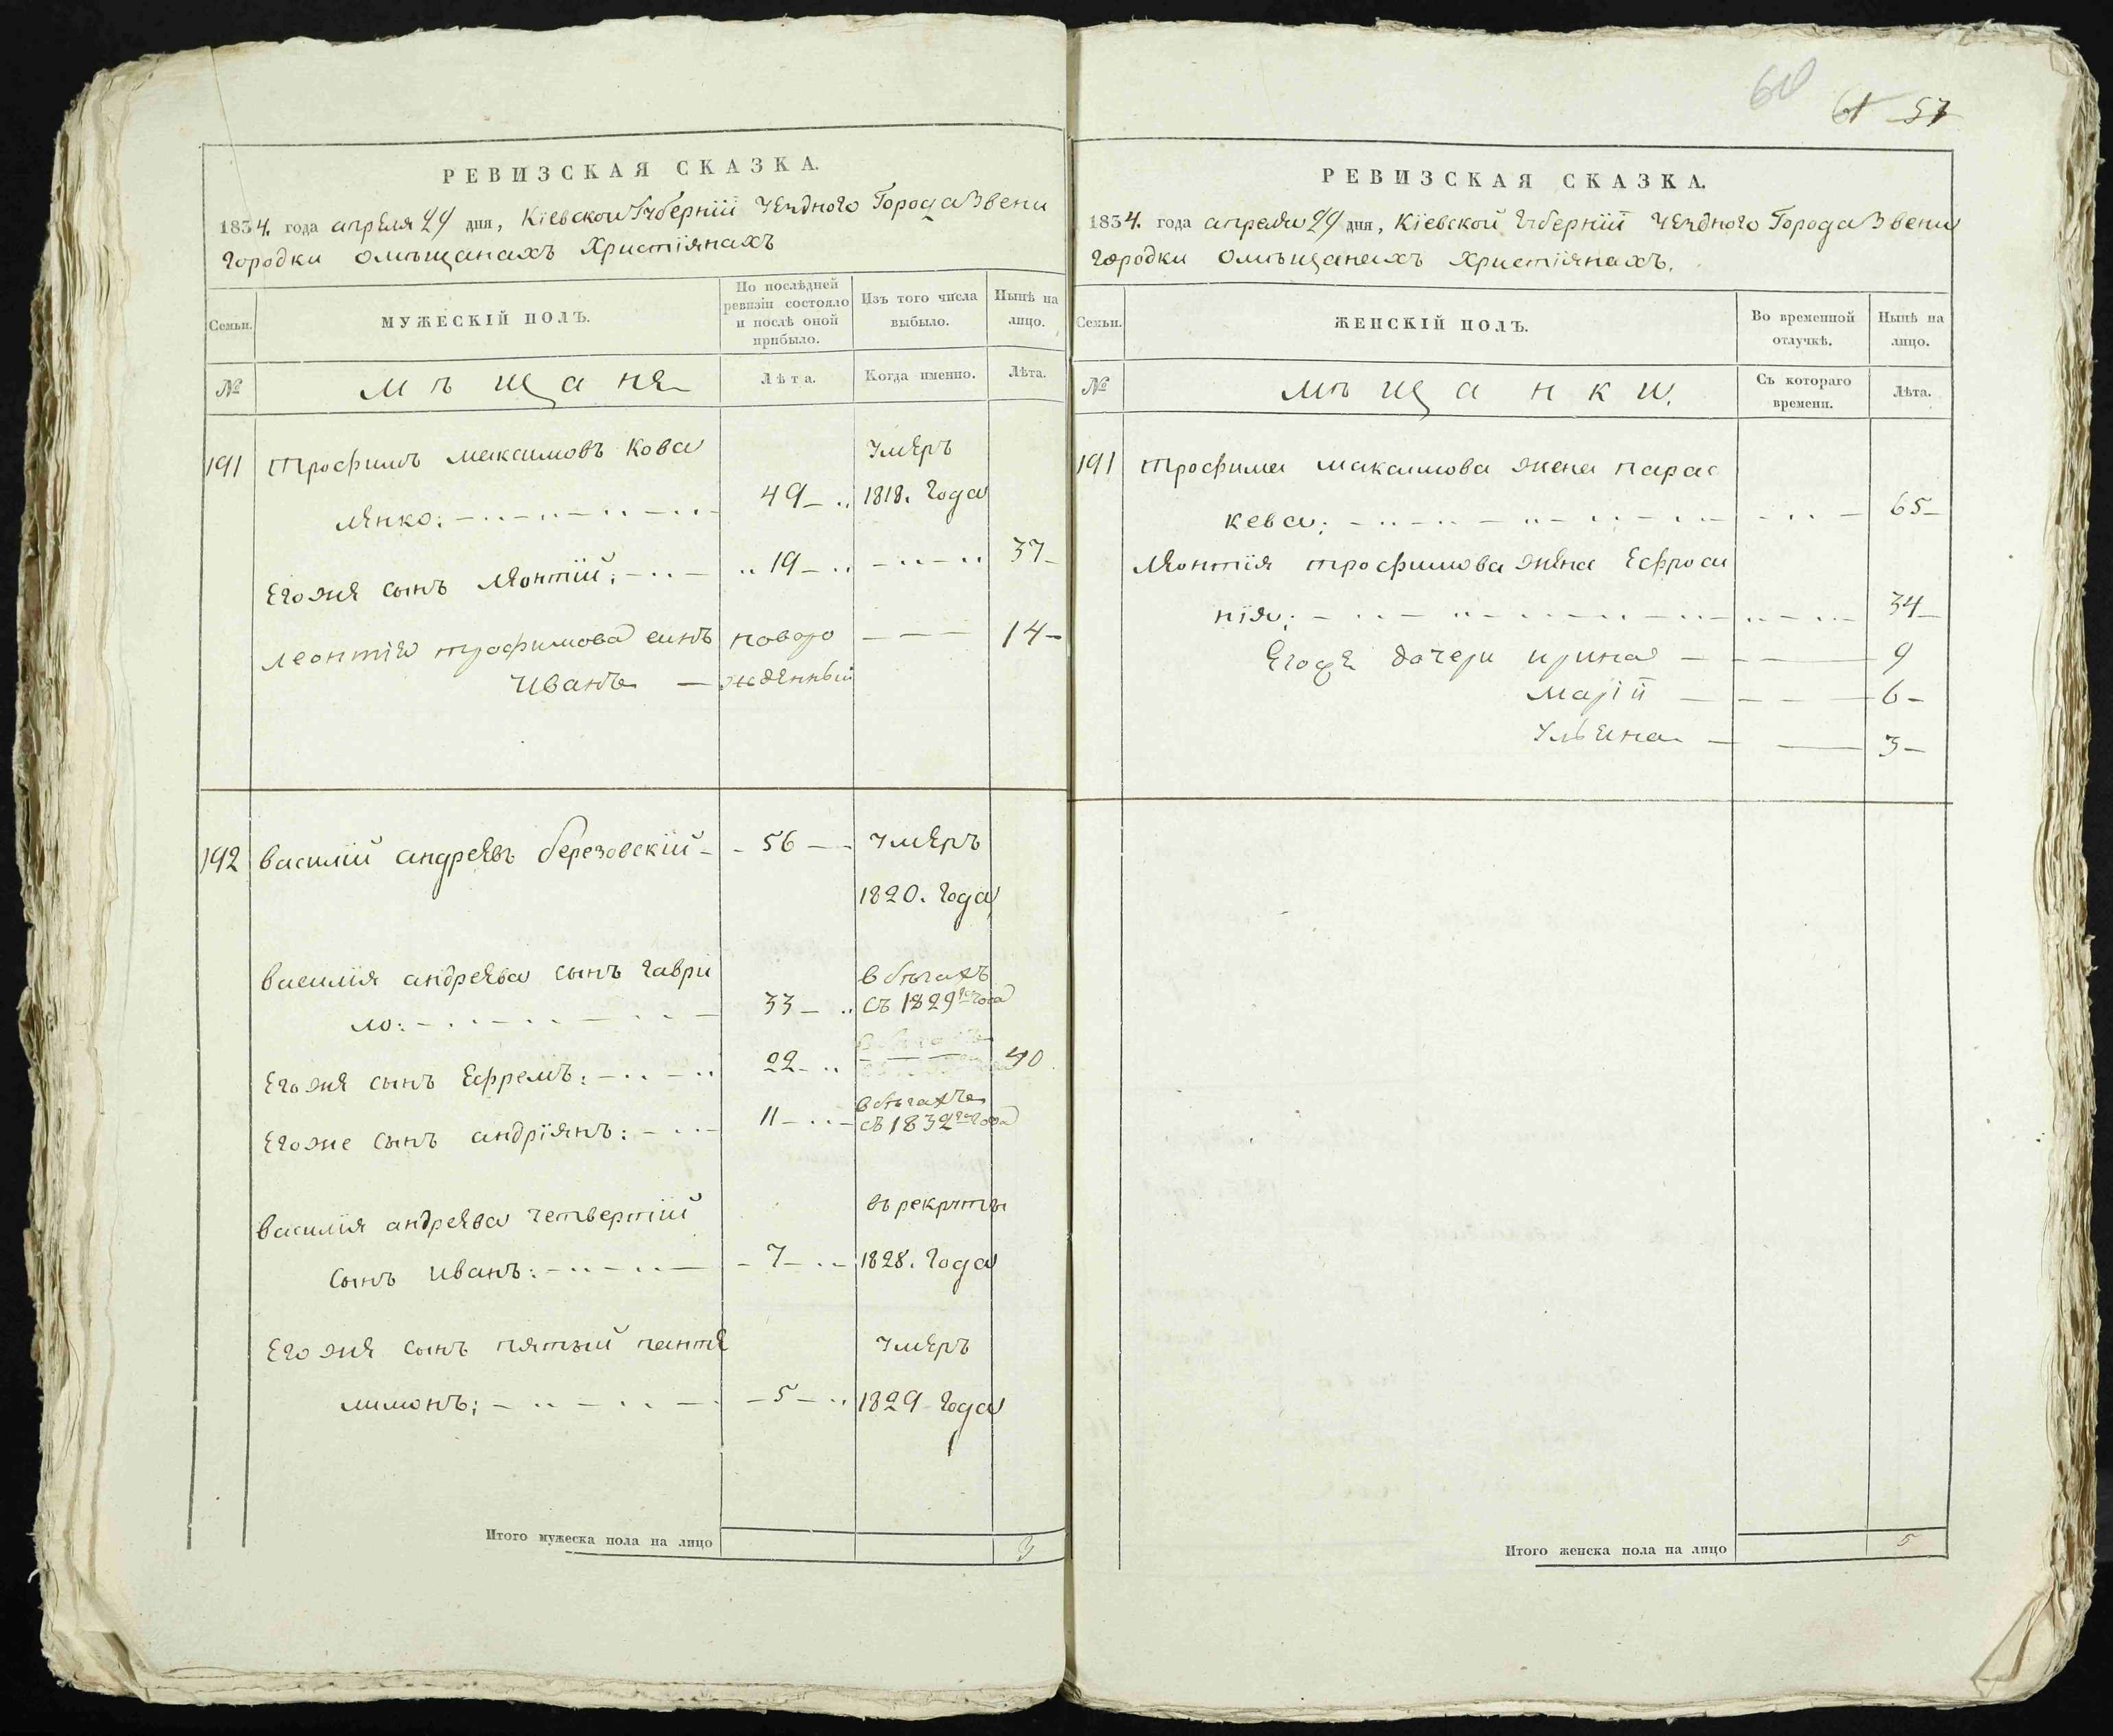 60 61 57
РЕВИЗСКАЯ СКАЗКА.
1834. года апреля 29 дня, Кіевской Губерніи Уездного Города Звени
городки Омѣщанахъ Христіянахъ
Семьи.
МУЖЕСКІЙ ПОЛЪ.
По послѣдней
ревизіи состояло
и послѣ оной
прибыло.
Изъ того числа
выбыло.
Нынѣ на
лицо.
№ мѣщане Лѣта. Когда именно. Лѣта.
191 Трофимъ максимовъ Кова умеръ
ленко: 49 1818. года
Егоже сынъ Леонтій: 19 37
леонтія трофимова синъ новоро 14
Иванъ жденный
192 василій андреевъ березовскій 56 умеръ
1820. года
василія андреева сынъ гаври вбѣгахъ
ло: 33 съ 1829го года
Егоже сынъ Ефремъ: 22 40
Егоже сынъ андріянъ: 11 вбѣгахъ
съ 1832го года
василія андреева четвертій въ рекруты
сынъ иванъ: 7 1828. года
Егоже сынъ пятый панте умеръ
лимонъ: 5 1829 года
Итого мужеска пола на лицо 3
РЕВИЗСКАЯ СКАЗКА.
1834. года апреля 29 дня, Кіевской Губерніи Уездного Города Звени
городки Омѣщанахъ Христіянахъ.
Семьи.
ЖЕНСКІЙ ПОЛЪ.
Во временной
отлучкѣ.
Нынѣ на
лицо.
№ мѣщанки.
Съ котораго
времени.
Лѣта.
191 Трофима максимова жена парас
кева: 65
Леонтія трофимова жена Ефроси
нія: 34
Егоже дочери ирина 9
Маріи 6
Ульяна 3
Итого женска пола на лицо 5